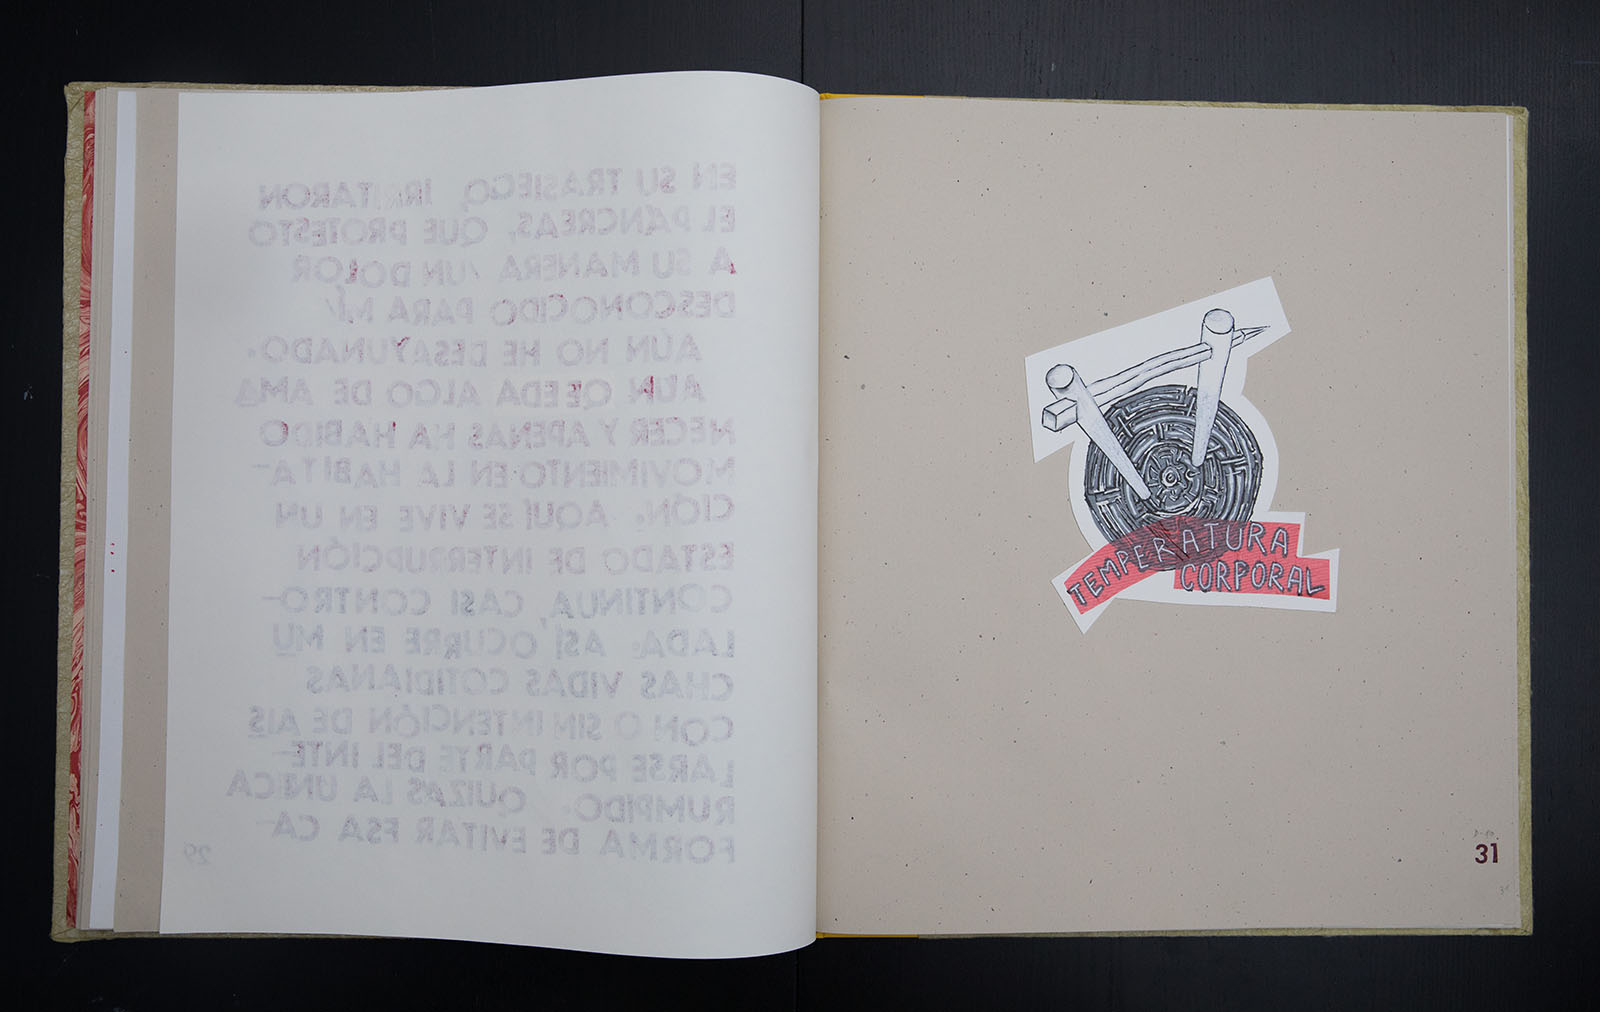 EN SU TRASIEGO, IRRITARON
EL PÁNCREAS, QUE PROTESTÓ
A SU MANERA /UN DOLOR
DESCONOCIDO PARA MÍ/
AÚN NO HE DESAYUNADO.
AÚN QEEDA ALGO DE AMA
NECER Y APENAS HA HABIDO
MOVIMIENTO EN LA HABITA-
CIÓN. AQUÍ SE VIVE EN UN
ESTADO DE INTERRUPCIÓN
CONTINUA, CASI CONTRO-
LADA. ASÍ OCURRE EN MU
CHAS VIDAS COTIDIANAS
CON O SIN INTENCIÓN DE AIS
LARSE POR PARTE DEL INTE-
RUMPIDO. QUIZAS LA ÚNICA
FORMA DE EVITAR ESA CA-
29
TEMPERATURA
CORPORAL
31